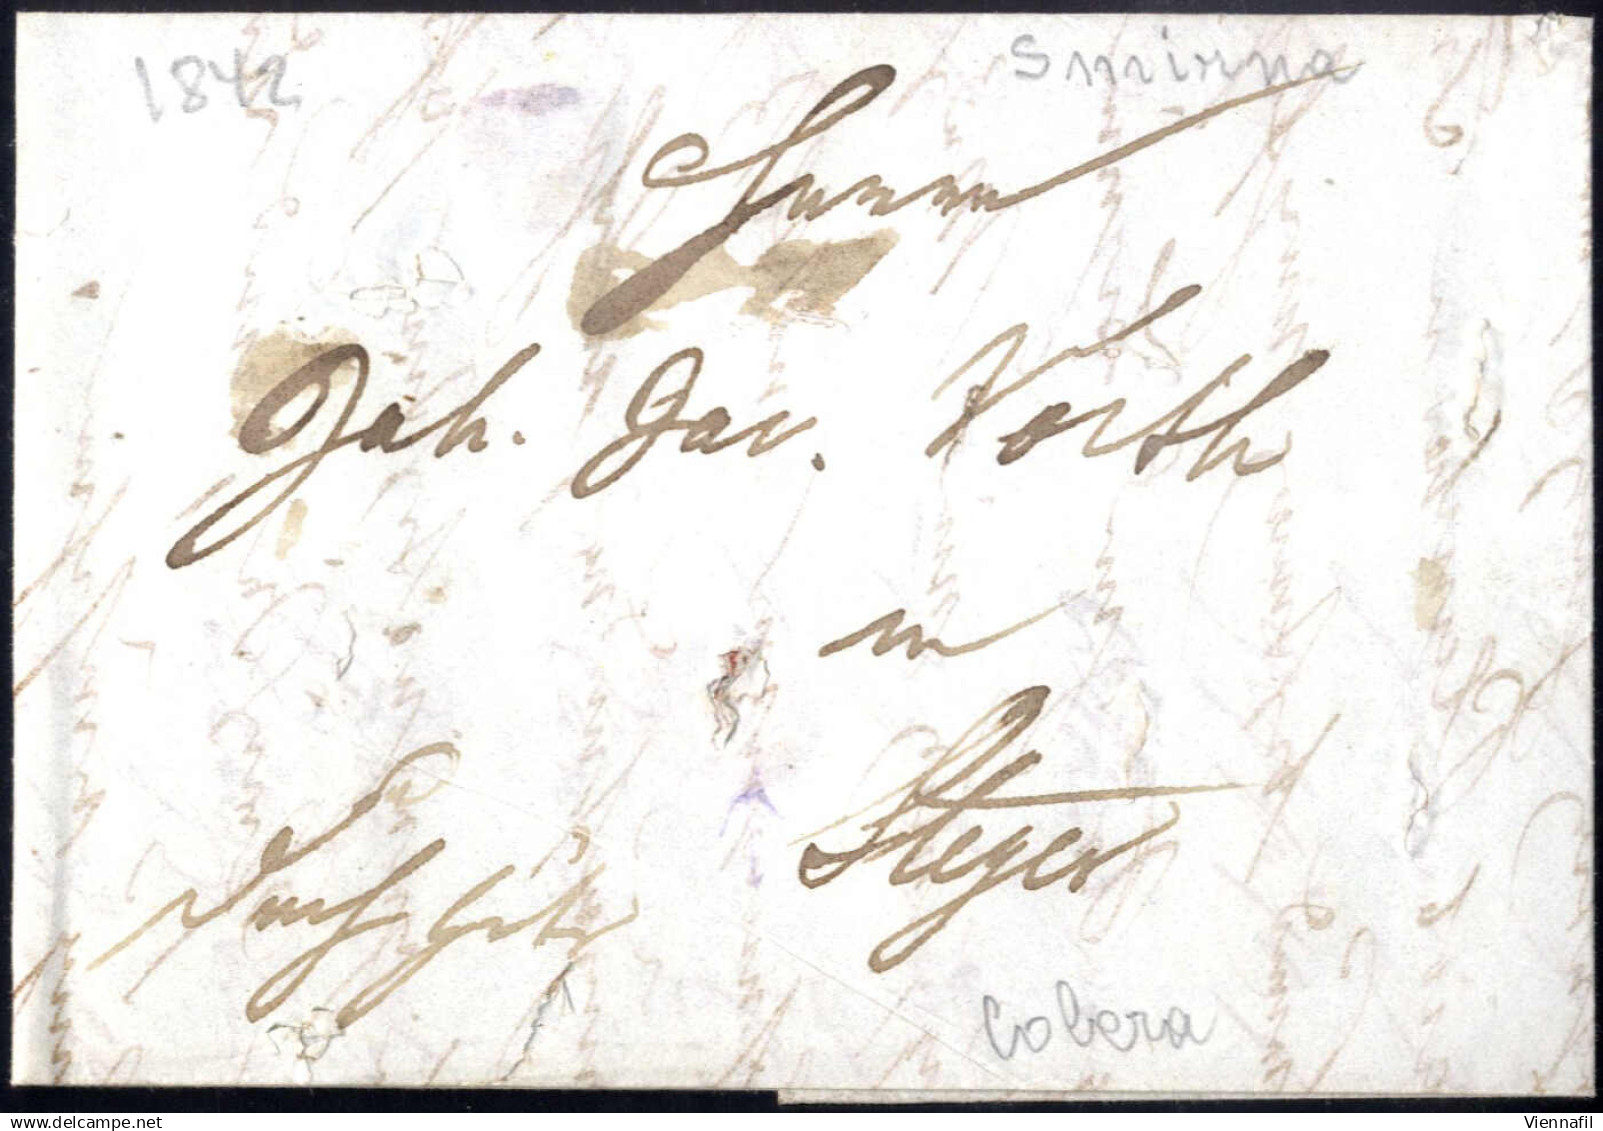 1842
Smirna
Herrn
Joh. Jac. Vörth
in
Steyer
Durch güte
Colera
delcampe.net
Viennafil